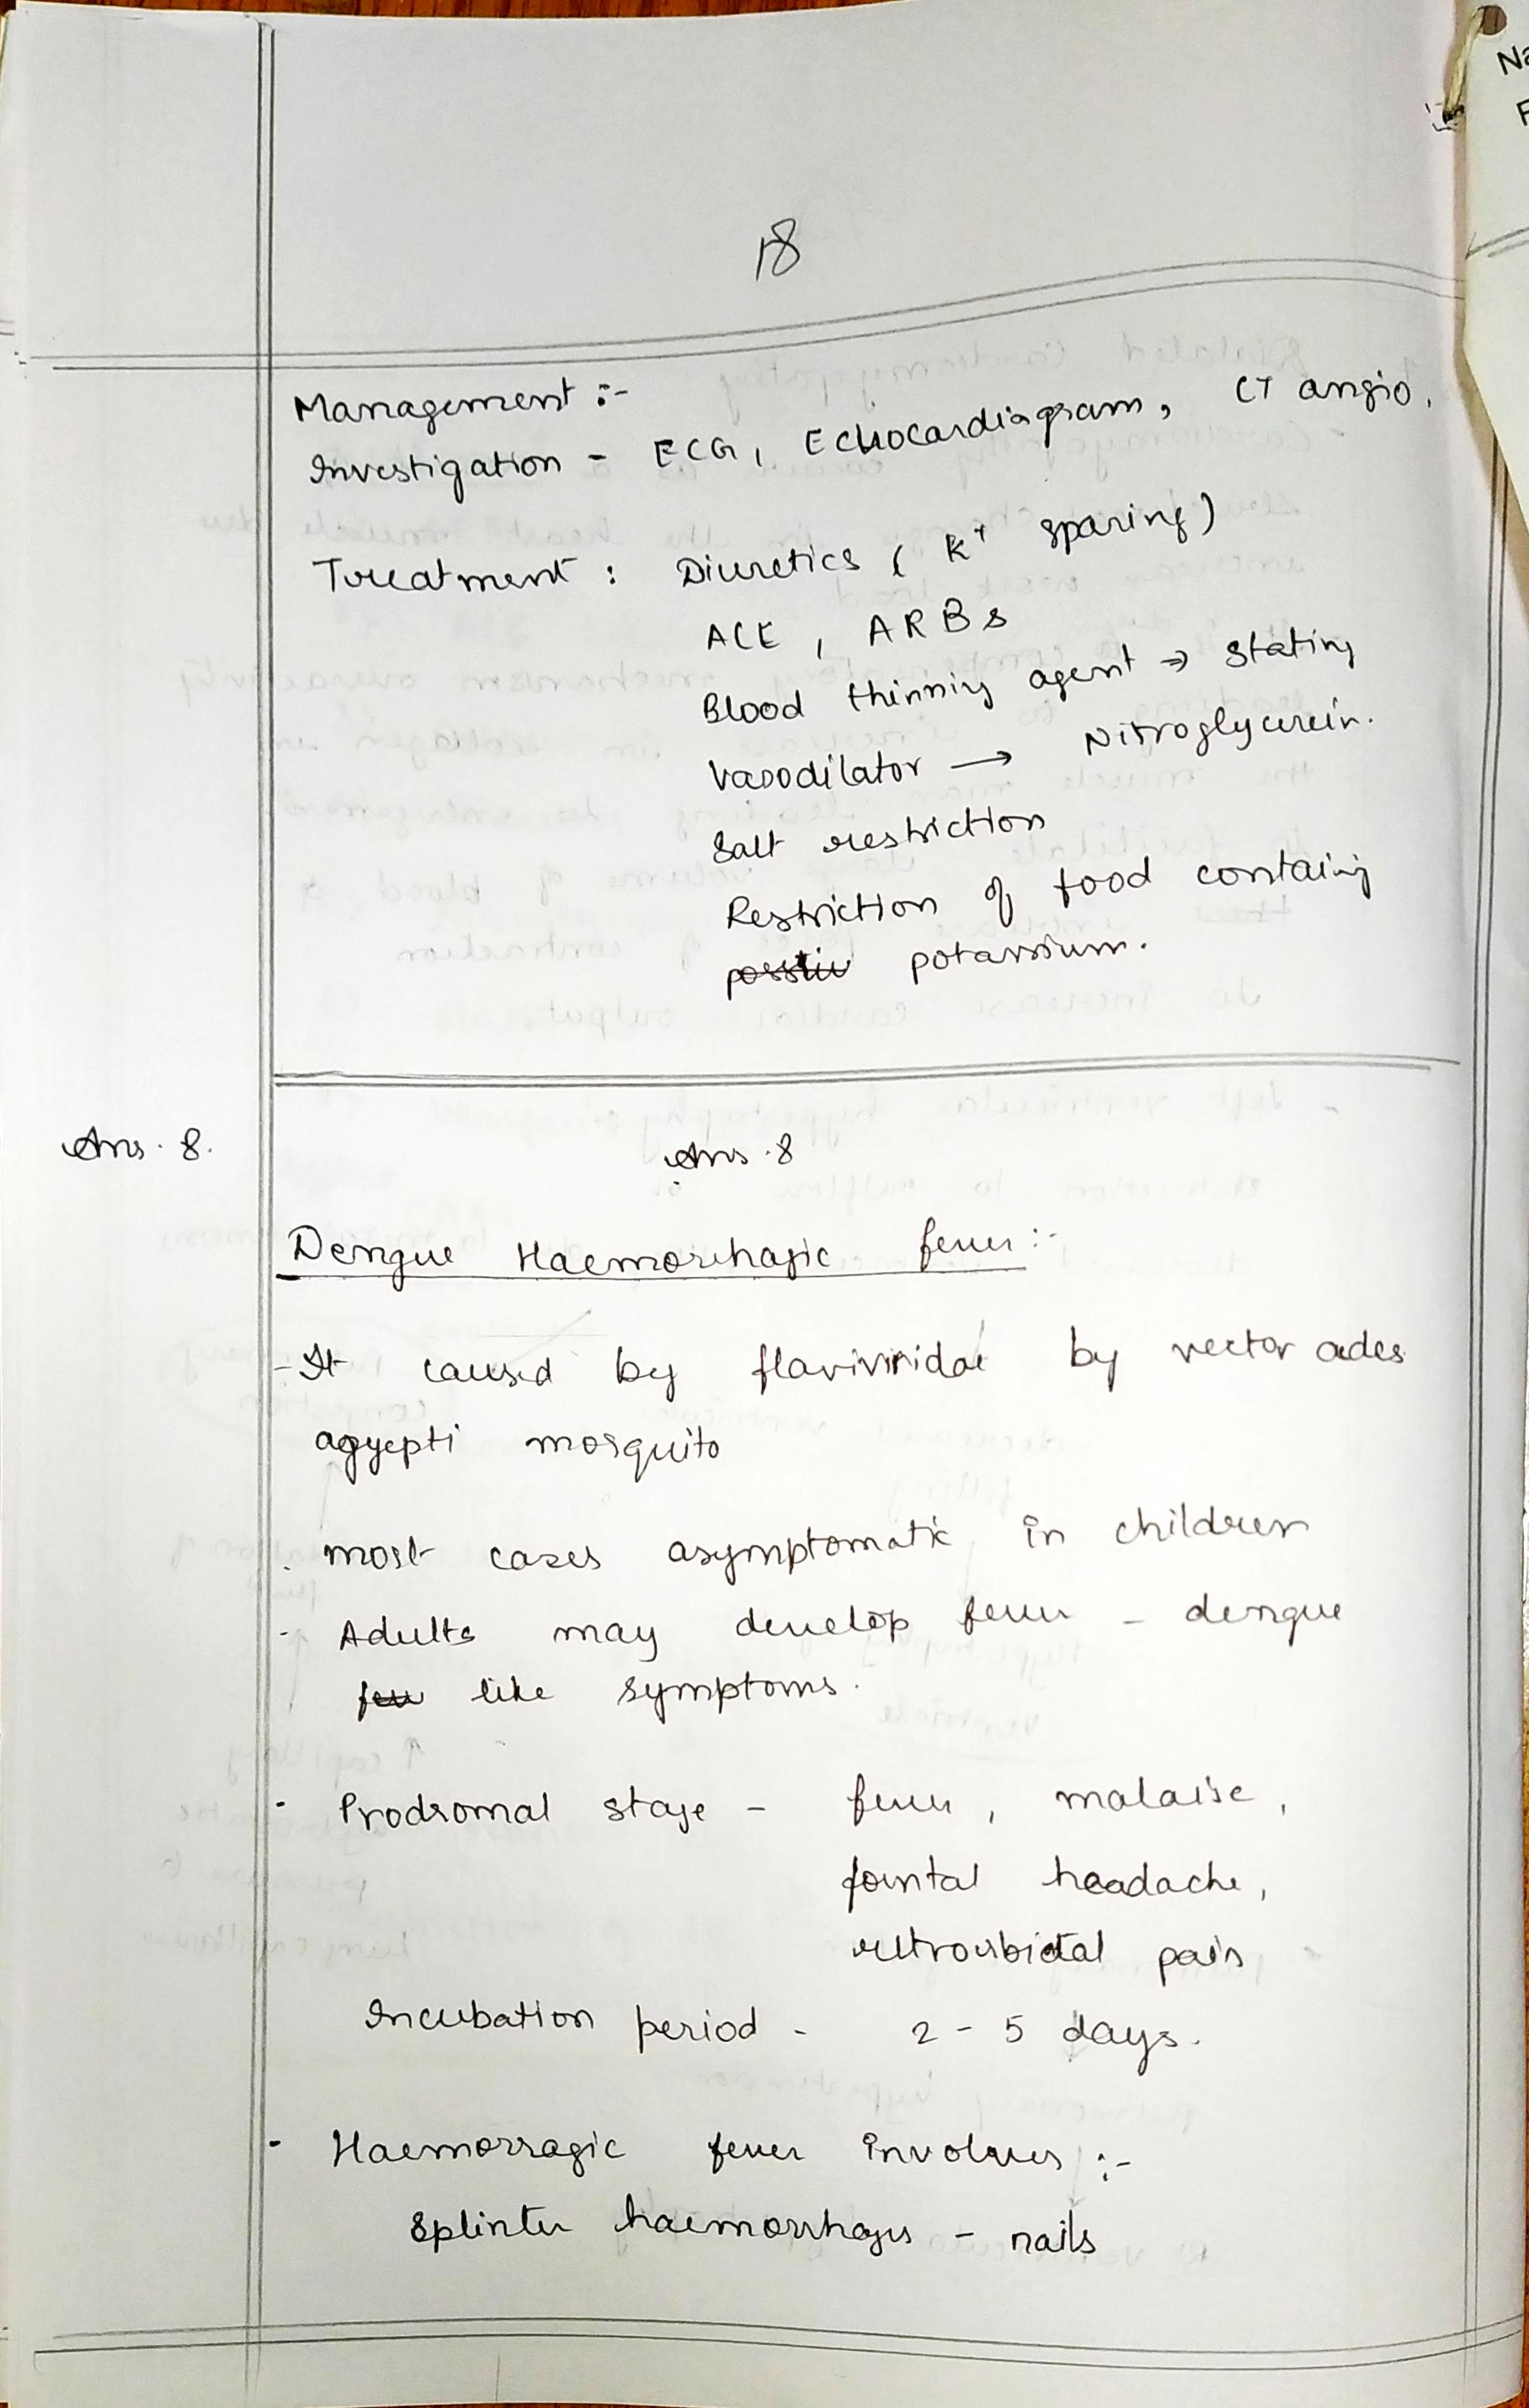 Na
F
18
Management :-
Investigation - ECG, Echocardiagram, CT angio.
Treatment : Diuretics ( K+ sparing)
ACE , ARBs
Blood thinning agent → Statins
Vasodilator → Nitroglycerein.
Salt restriction
Restriction of food containig
potassium.
Ans. 8. Ans. 8
Dengue Haemorrhagic fever :-
- It caused by flaviviridae by vector ades
agyepti mosquito
. most cases asymptomatic in children
- Adults may develop fever - dengue
like symptoms.
- Prodromal stage - fever, malaise,
fointal headache,
retroorbital pain
Incubation period - 2 - 5 days.
- Haemorragic fever involves :-
Splinter haemorrhages - nails